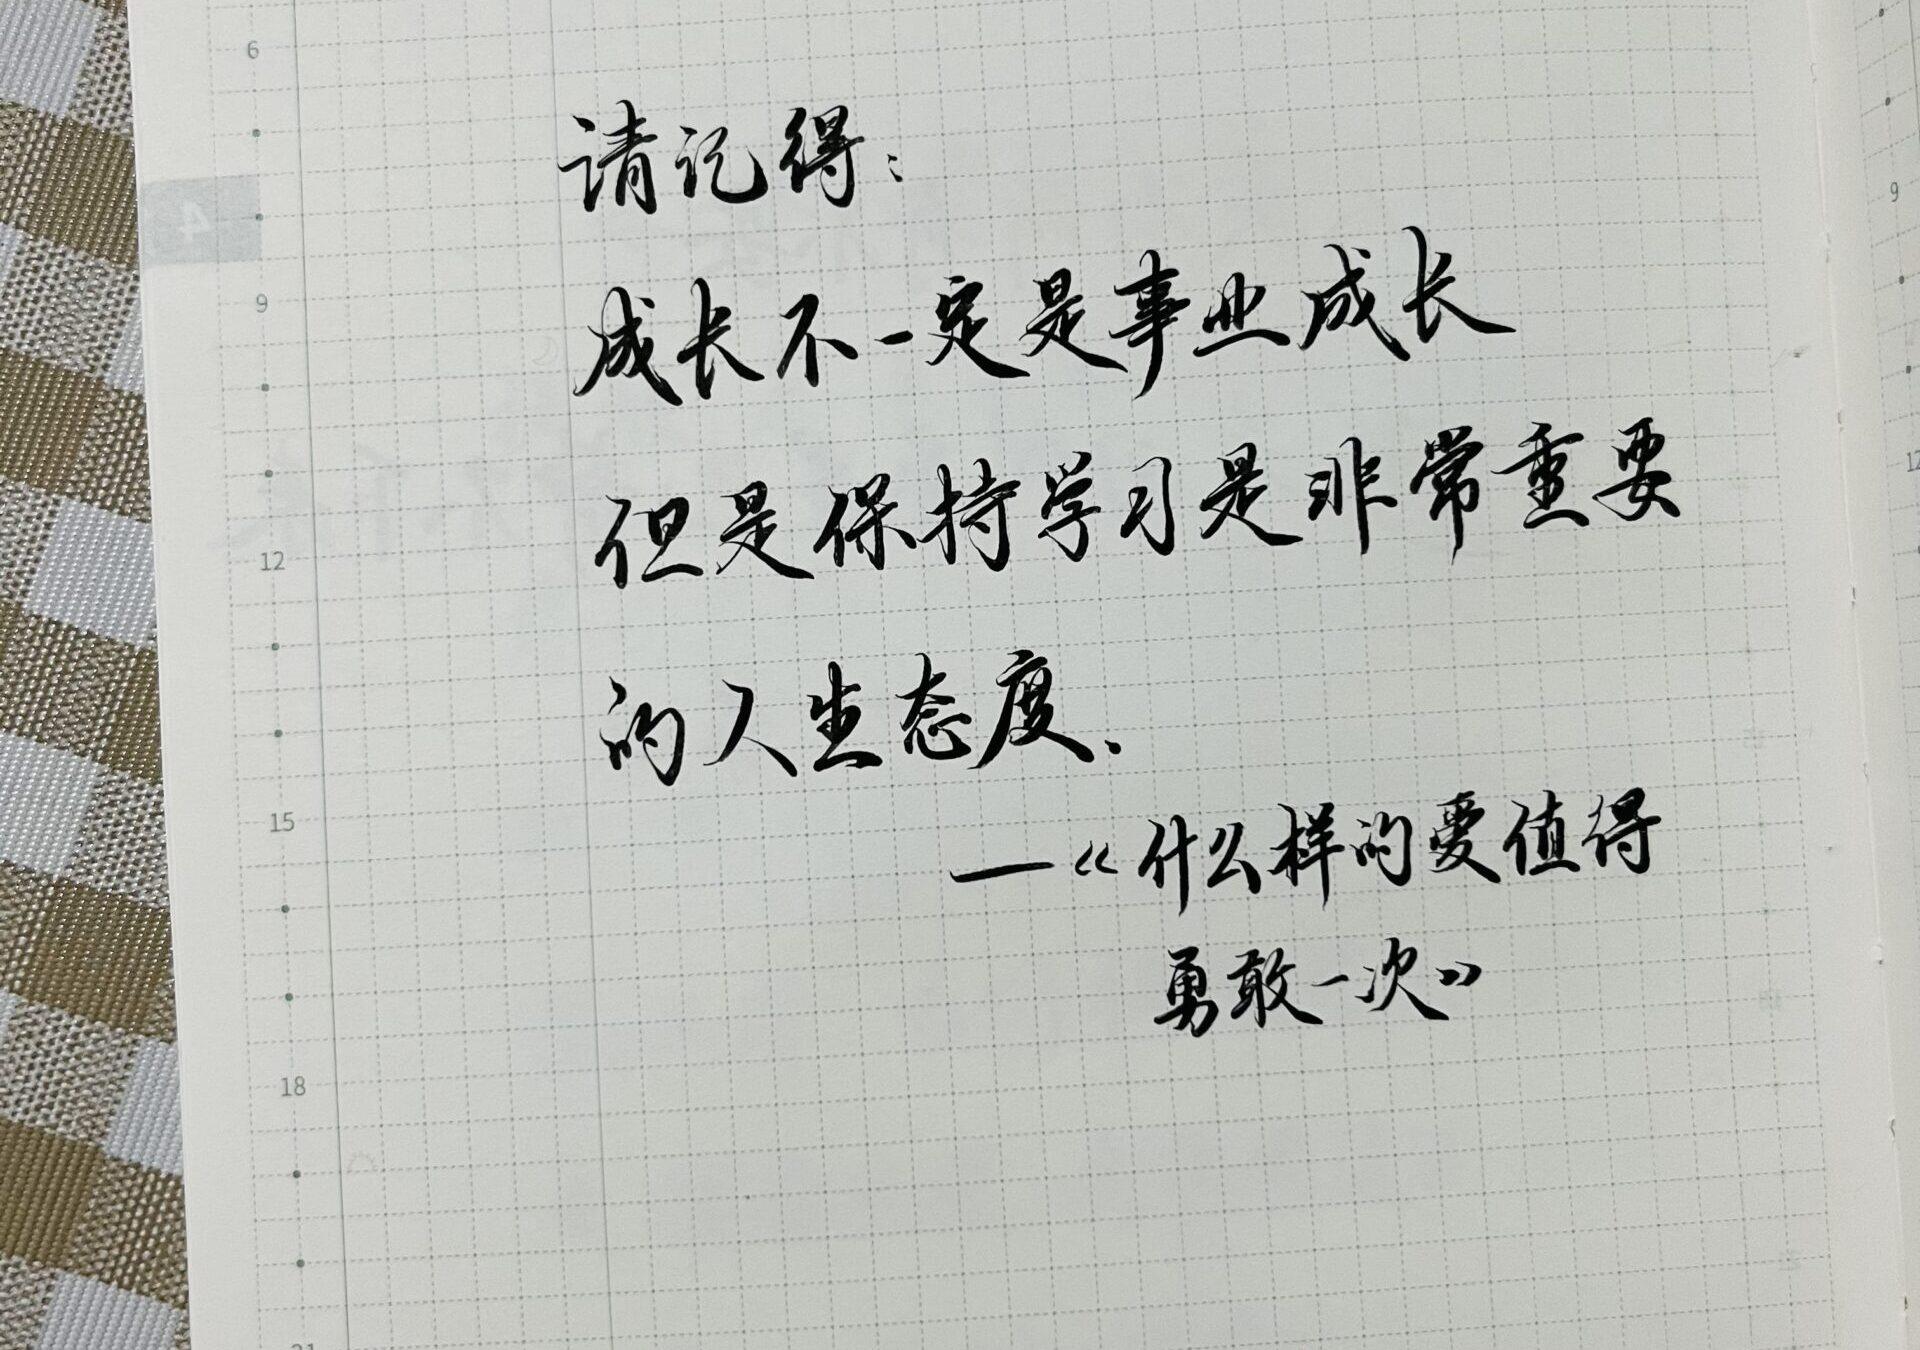 6
请记得：
4
9
成长不一定是事业成长
9
但是保持学习是非常重要
12
12
的人生态度、
15
—《什么样的爱值得
勇敢一次》
18
21